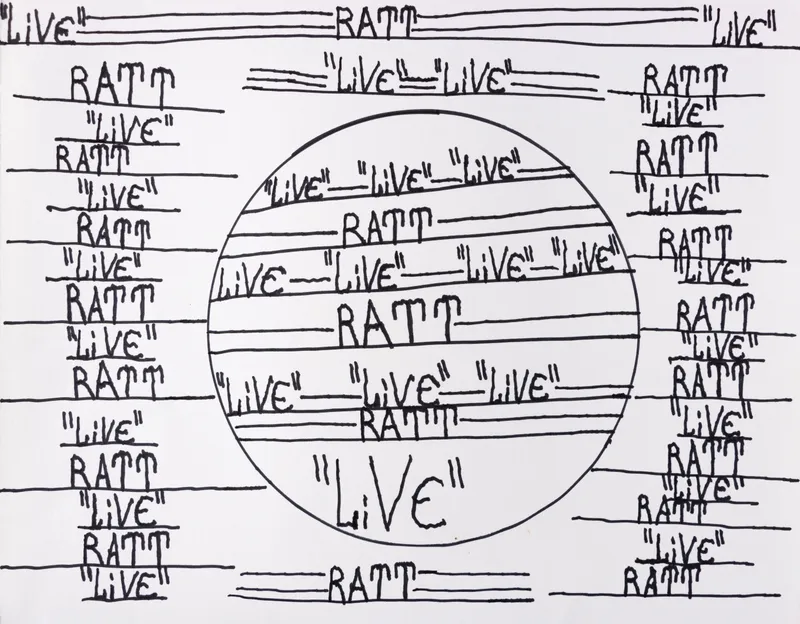 "LiVE" RATT "LiVE"
"LiVE" "LiVE"
RATT
"LiVE"
RATT
"LiVE"
RATT
"LiVE"
RATT
"LiVE"
RATT
"LiVE"
RATT
"LiVE"
RATT
"LiVE"
"LiVE" "LiVE" "LiVE"
RATT
LiVE "LiVE" "LiVE" "LiVE"
RATT
"LiVE" "LiVE" "LiVE"
RATT
"LiVE"
RATT
"LiVE"
RATT
"LiVE"
RATT
"LiVE"
RATT
"LiVE"
RATT
"LiVE"
RATT
"LiVE"
RATT
"LiVE"
RATT
RATT